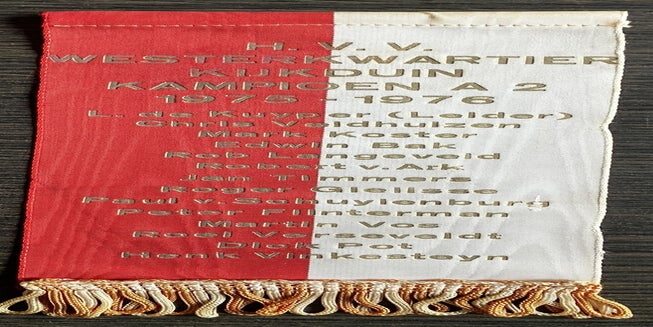 H. V. V.
WESTERKWARTIER
KIJKDUIN
KAMPIOEN A 2
1975 - 1976
L. de Kuyper (Leider)
Chris Veldhuizen
Mark Koster
Edwin Bak
Rob Langeveld
Robert v. Ark
Jan Timmers
Roger Glelisse
Paul v. Schuylenburg
Peter Flinterman
Martin Vos
Roel
Dick Pot
Henk Vinkesteyn